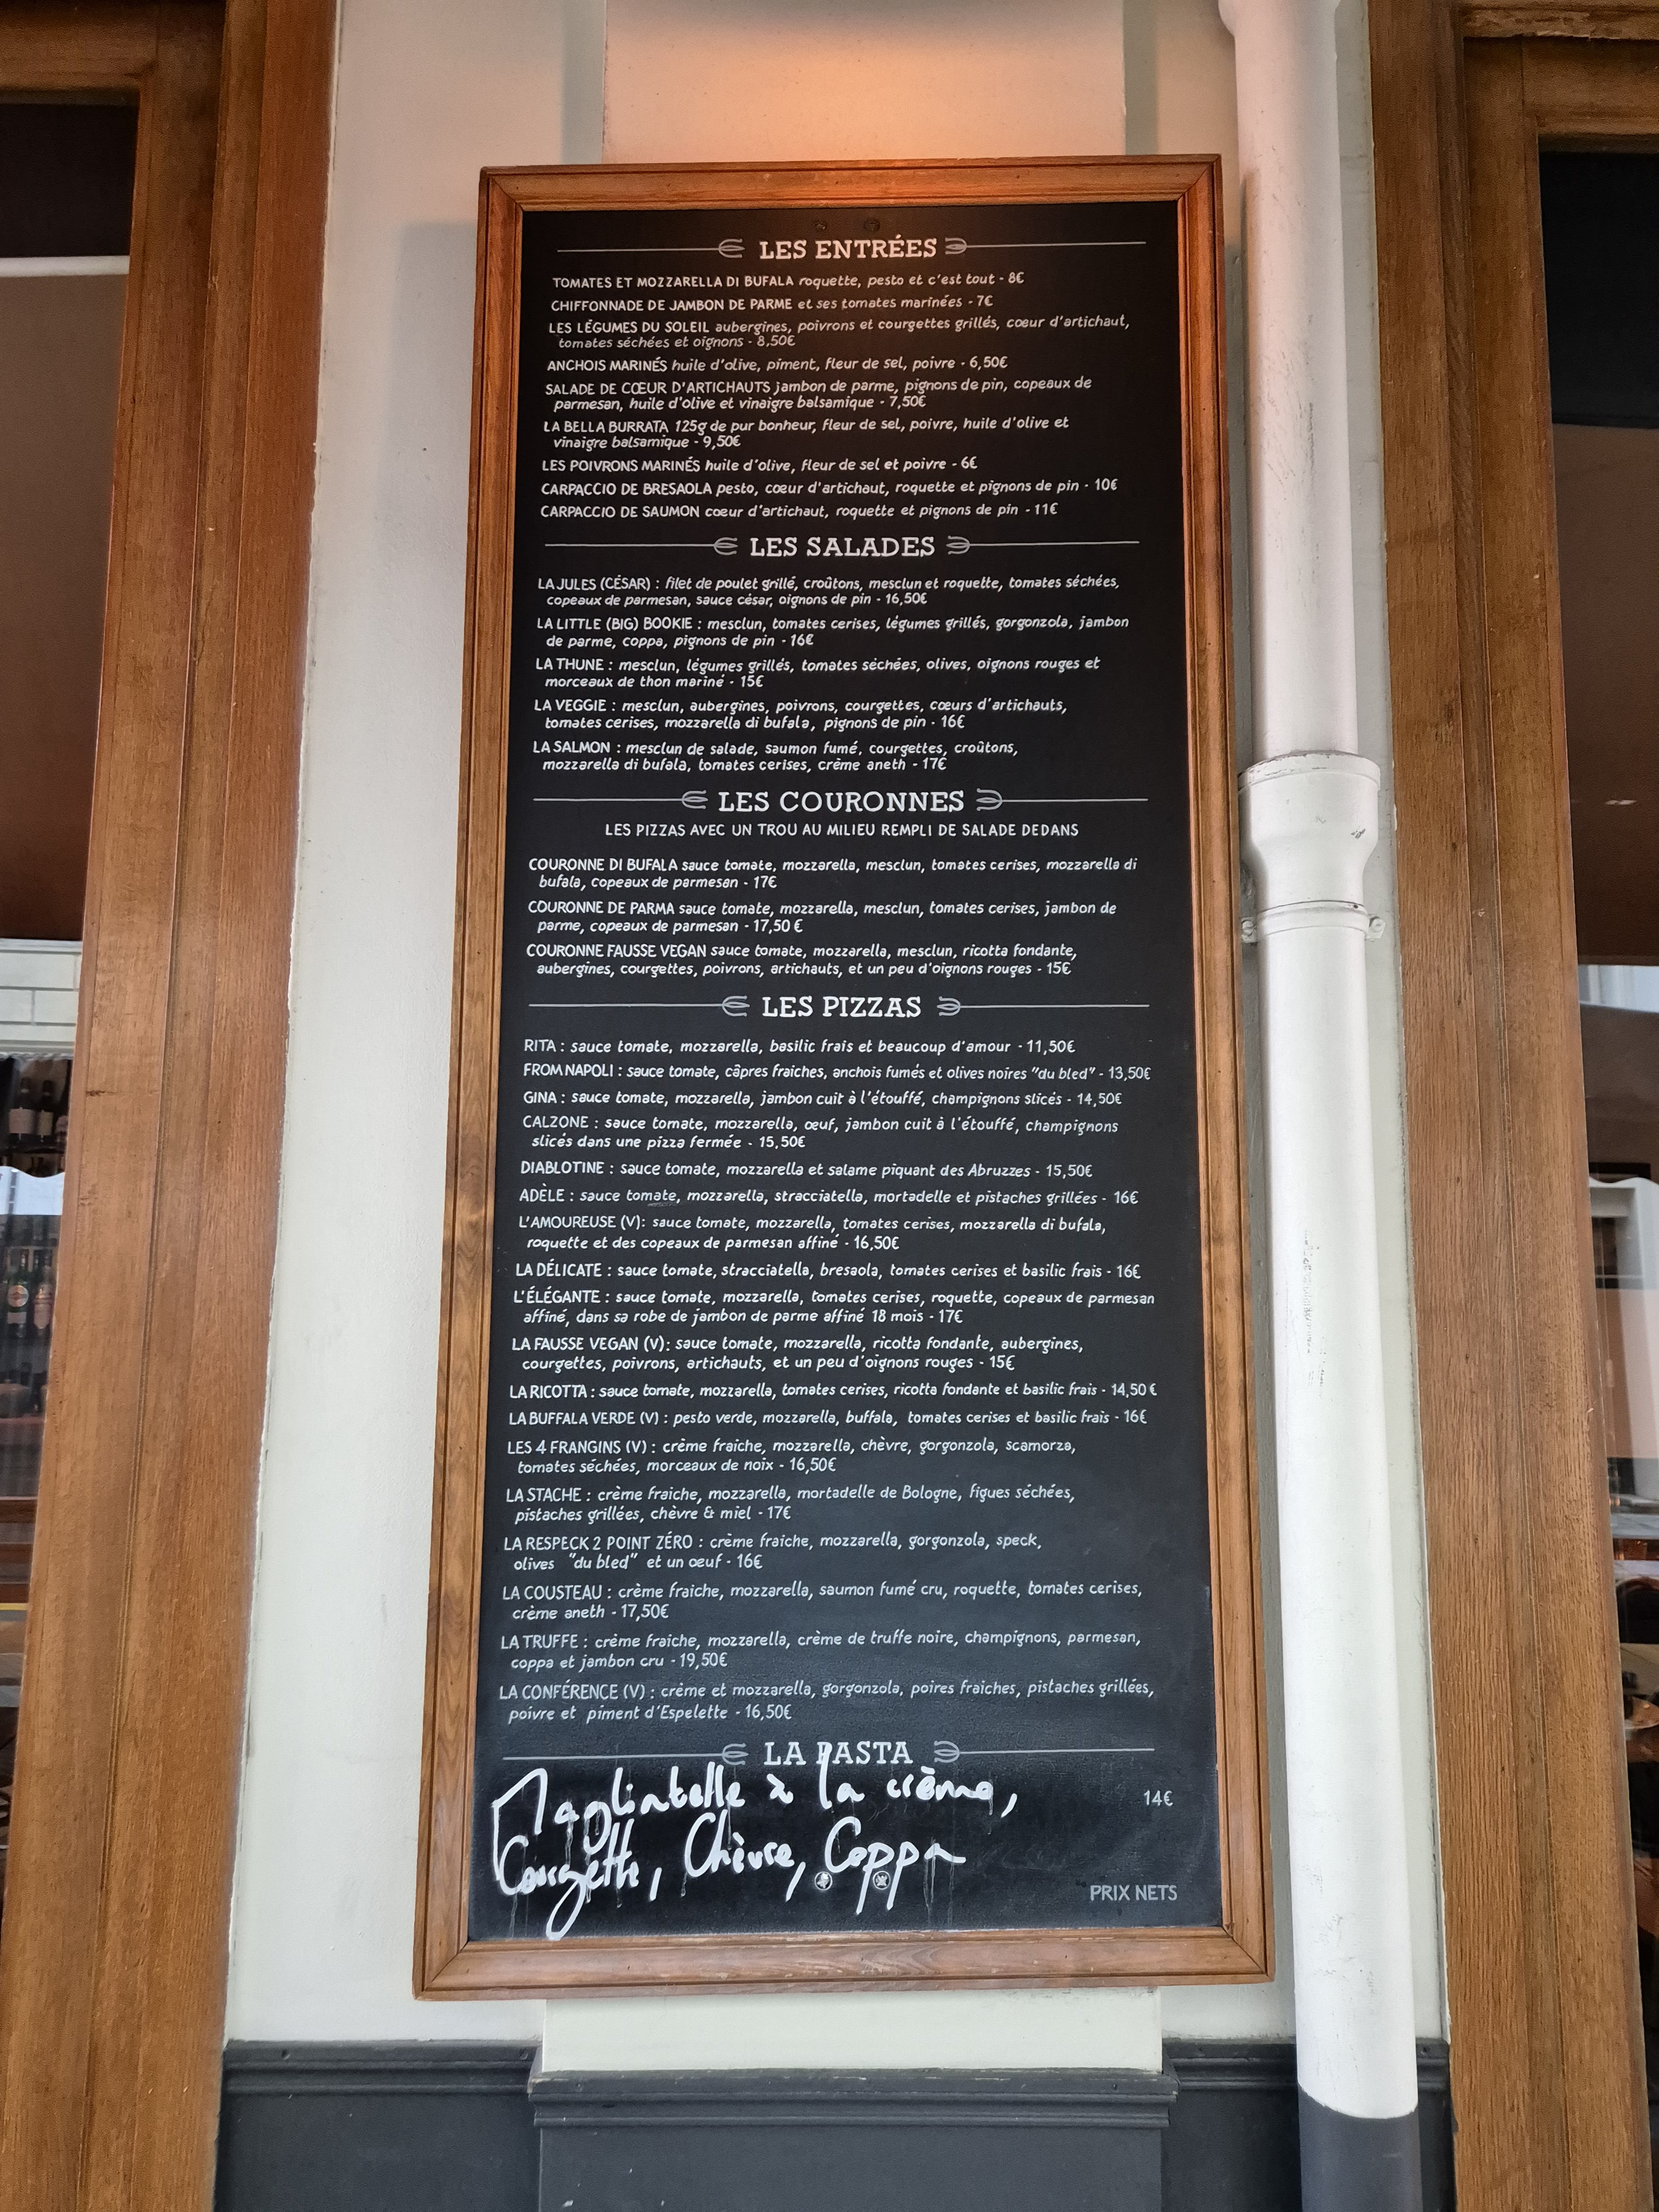 LES ENTRÉES
TOMATES ET MOZZARELLA DI BUFALA roquette, pesto et c'est tout - 8€
CHIFFONNADE DE JAMBON DE PARME et ses tomates marinées - 7€
LES LÉGUMES DU SOLEIL aubergines, poivrons et courgettes grillés, cœur d'artichaut,
tomates séchées et oignons - 8,50€
ANCHOIS MARINÉS huile d'olive, piment, fleur de sel, poivre - 6,50€
SALADE DE CŒUR D'ARTICHAUTS jambon de parme, pignons de pin, copeaux de
parmesan, huile d'olive et vinaigre balsamique - 7,50€
LA BELLA BURRATA 125g de pur bonheur, fleur de sel, poivre, huile d'olive et
vinaigre balsamique - 9,50€
LES POIVRONS MARINÉS huile d'olive, fleur de sel et poivre - 6€
CARPACCIO DE BRESAOLA pesto, cœur d'artichaut, roquette et pignons de pin - 10€
CARPACCIO DE SAUMON cœur d'artichaut, roquette et pignons de pin - 11€
LES SALADES
LA JULES (CÉSAR) : filet de poulet grillé, croûtons, mesclun et roquette, tomates séchées,
copeaux de parmesan, sauce césar, oignons de pin - 16,50€
LA LITTLE (BIG) BOOKIE : mesclun, tomates cerises, légumes grillés, gorgonzola, jambon
de parme, coppa, pignons de pin - 16€
LA THUNE : mesclun, légumes grillés, tomates séchées, olives, oignons rouges et
morceaux de thon mariné - 15€
LA VEGGIE : mesclun, aubergines, poivrons, courgettes, cœurs d'artichauts,
tomates cerises, mozzarella di bufala, pignons de pin - 16€
LA SALMON : mesclun de salade, saumon fumé, courgettes, croûtons,
mozzarella di bufala, tomates cerises, crème aneth - 17€
LES COURONNES
LES PIZZAS AVEC UN TROU AU MILIEU REMPLI DE SALADE DEDANS
COURONNE DI BUFALA sauce tomate, mozzarella, mesclun, tomates cerises, mozzarella di
bufala, copeaux de parmesan - 17€
COURONNE DE PARMA sauce tomate, mozzarella, mesclun, tomates cerises, jambon de
parme, copeaux de parmesan - 17,50 €
COURONNE FAUSSE VEGAN sauce tomate, mozzarella, mesclun, ricotta fondante,
aubergines, courgettes, poivrons, artichauts, et un peu d'oignons rouges - 15€
LES PIZZAS
RITA : sauce tomate, mozzarella, basilic frais et beaucoup d'amour - 11,50€
FROM NAPOLI : sauce tomate, câpres fraiches, anchois fumés et olives noires "du bled" - 13,50€
GINA : sauce tomate, mozzarella, jambon cuit à l'étouffé, champignons slicés - 14,50€
CALZONE : sauce tomate, mozzarella, œuf, jambon cuit à l'étouffé, champignons
slicés dans une pizza fermée - 15,50€
DIABLOTINE : sauce tomate, mozzarella et salame piquant des Abruzzes - 15,50€
ADÈLE : sauce tomate, mozzarella, stracciatella, mortadelle et pistaches grillées - 16€
L'AMOUREUSE (V): sauce tomate, mozzarella, tomates cerises, mozzarella di bufala,
roquette et des copeaux de parmesan affiné - 16,50€
LA DÉLICATE : sauce tomate, stracciatella, bresaola, tomates cerises et basilic frais - 16€
L'ÉLÉGANTE : sauce tomate, mozzarella, tomates cerises, roquette, copeaux de parmesan
affiné, dans sa robe de jambon de parme affiné 18 mois - 17€
LA FAUSSE VEGAN (V): sauce tomate, mozzarella, ricotta fondante, aubergines,
courgettes, poivrons, artichauts, et un peu d'oignons rouges - 15€
LA RICOTTA : sauce tomate, mozzarella, tomates cerises, ricotta fondante et basilic frais - 14,50 €
LA BUFFALA VERDE (V) : pesto verde, mozzarella, buffala, tomates cerises et basilic frais - 16€
LES 4 FRANGINS (V) : crème fraiche, mozzarella, chèvre, gorgonzola, scamorza,
tomates séchées, morceaux de noix - 16,50€
LA STACHE : crème fraiche, mozzarella, mortadelle de Bologne, figues séchées,
pistaches grillées, chèvre & miel - 17€
LA RESPECK 2 POINT ZÉRO : crème fraiche, mozzarella, gorgonzola, speck,
olives "du bled" et un œuf - 16€
LA COUSTEAU : crème fraiche, mozzarella, saumon fumé cru, roquette, tomates cerises,
crème aneth - 17,50€
LA TRUFFE : crème fraiche, mozzarella, crème de truffe noire, champignons, parmesan,
coppa et jambon cru - 19,50€
LA CONFÉRENCE (V) : crème et mozzarella, gorgonzola, poires fraiches, pistaches grillées,
poivre et piment d'Espelette - 16,50€
LA PASTA
Tagliatelle à la crème, 14€
Courgette, Chèvre, Coppa
PRIX NETS